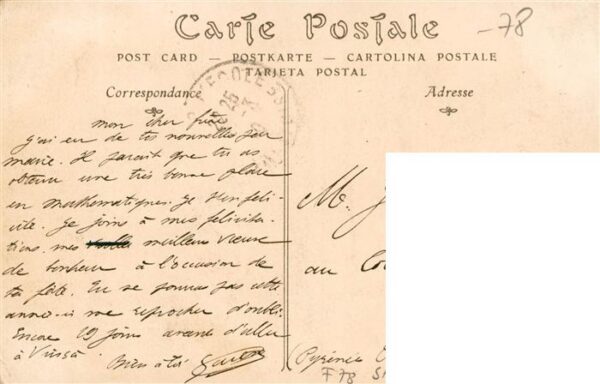 Carte Postale
-78
POST CARD — POSTKARTE — CARTOLINA POSTALE
TARJETA POSTAL
Correspondance
mon cher frère
j'ai eu de tes nouvelles par
marie. Il parait que tu as
obtenu une très bonne place
en mathématiques. Je t'en féli-
cite. Je joins à mes félicita-
tions mes meilleurs vœux
de bonheur à l'occasion de
ta fête. Tu ne pourras pas cette
année-ci me reprocher d'oubli.
Encore 19 jours avant d'aller
à
bien à toi
Adresse
M. J
au Co
(Pyrénées O
F 78 S